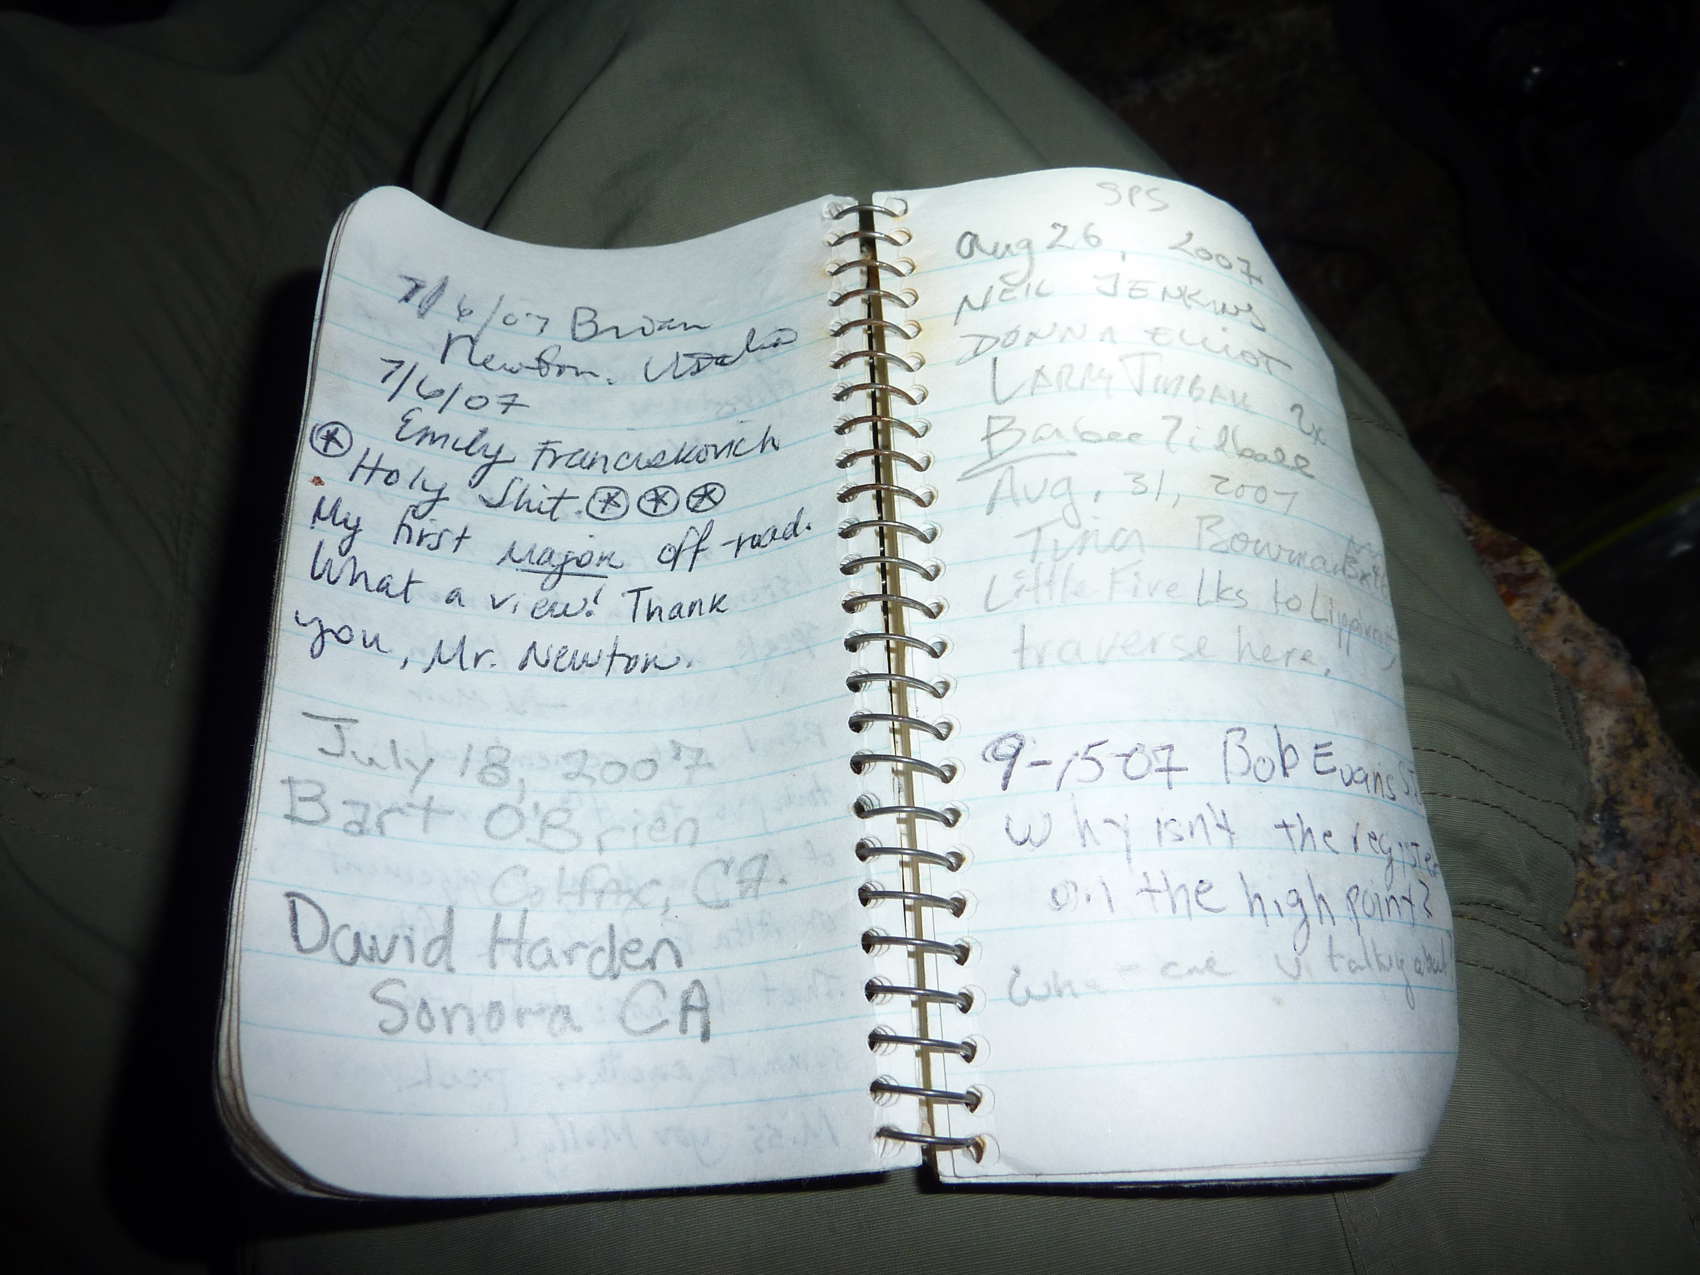 7/6/07 Brian
Newton, Visalia
7/6/07
Emily Franciskovich
Holy Shit.
My first major off-road.
What a view! Thank
you, Mr. Newton.
July 18, 2007
Bart O'Brien
Colfax, CA.
David Harden
Sonora CA
SPS
Aug 26, 2007
NEIL JENKINS
DONNA ELLIOT
LARRY 2x
Barbee
Aug, 31, 2007
Tina Bowman
Little Five Lks to Lippincott,
traverse here.
9-15-07 Bob Evans
Why isn't the register
on the high point?
talking about?